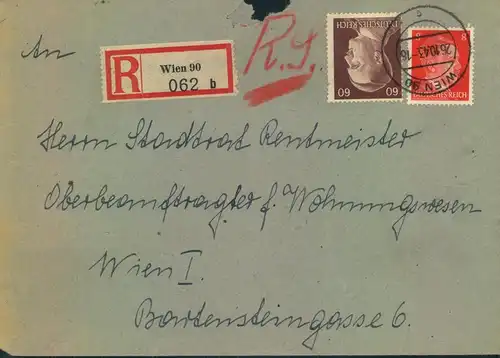 An
R
Wien 90
062 b
R.S.
60 60
DEUTSCHES REICH
8 8
DEUTSCHES REICH
26.10.43-16
WIEN 90
Herrn Stadtrat Rentmeister
Oberbeauftragter f. Wohnungswesen
Wien I.
Bartensteingasse 6.